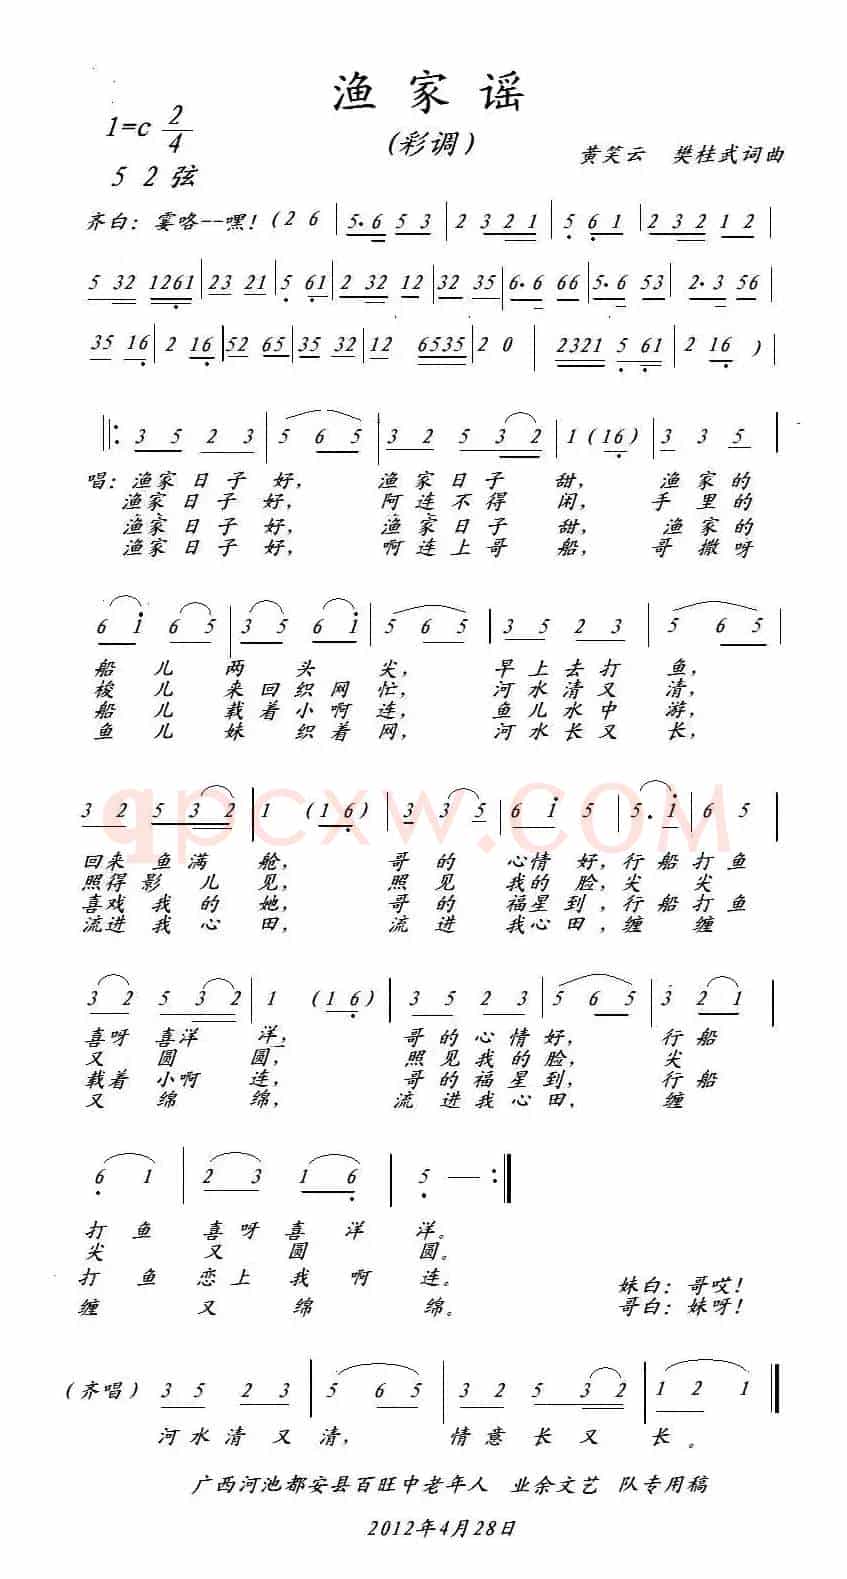 渔家谣
1=c 2/4
(彩调)
黄笑云 樊桂武词曲
5 2 弦
齐白: 霎咯--嘿! (2 6 | 5·6 5 3 | 2 3 2 1 | 5 6 1 | 2 3 2 1 2 |
5 32 1261 | 23 21 | 5 61 | 2 32 12 | 32 35 | 6·6 66 | 5·6 53 | 2·3 56 |
35 16 | 2 16 | 52 65 | 35 32 | 12 6535 | 2 0 | 2321 5 61 | 2 16 )
‖: 3 5 2 3 | 5 6 5 | 3 2 5 3 2 | 1 (16) | 3 3 5 |
唱: 渔家日子好, 渔家日子甜, 渔家的
渔家日子好, 阿连不得闲, 手里的
渔家日子好, 渔家日子甜, 渔家的
渔家日子好, 啊连上哥船, 哥撒呀
6 i 6 5 | 3 5 6 i | 5 6 5 | 3 5 2 3 | 5 6 5 |
船儿两头尖, 早上去打鱼,
梭儿来回织网忙, 河水清又清,
船儿载着小啊连, 鱼儿水中游,
鱼儿妹织着网, 河水长又长,
3 2 5 3 2 | 1 (1 6) | 3 3 5 | 6 i 5 | 5·i | 6 5
qpcxw.COM
回来鱼满舱, 哥的心情好, 行船打鱼
照得影儿见, 照见我的脸, 尖尖
喜戏我的她, 哥的福星到, 行船打鱼
流进我心田, 流进我心田, 缠缠
3 2 5 3 2 | 1 (1 6) | 3 5 2 3 | 5 6 5 | 3 2 1 |
喜呀喜洋洋, 哥的心情好, 行船
又圆圆, 照见我的脸, 尖
载着小啊连, 哥的福星到, 行船
又绵绵, 流进我心田, 缠
6 1 | 2 3 1 6 | 5 — :‖
打鱼喜呀喜洋洋。
尖又圆圆。
打鱼恋上我啊连。
妹白: 哥哎!
缠又绵绵。
哥白: 妹呀!
(齐唱) 3 5 2 3 | 5 6 5 | 3 2 5 3 2 | 1 2 1 ‖
河水清又清, 情意长又长。
广西河池都安县百旺中老年人 业余文艺 队专用稿
2012年4月28日